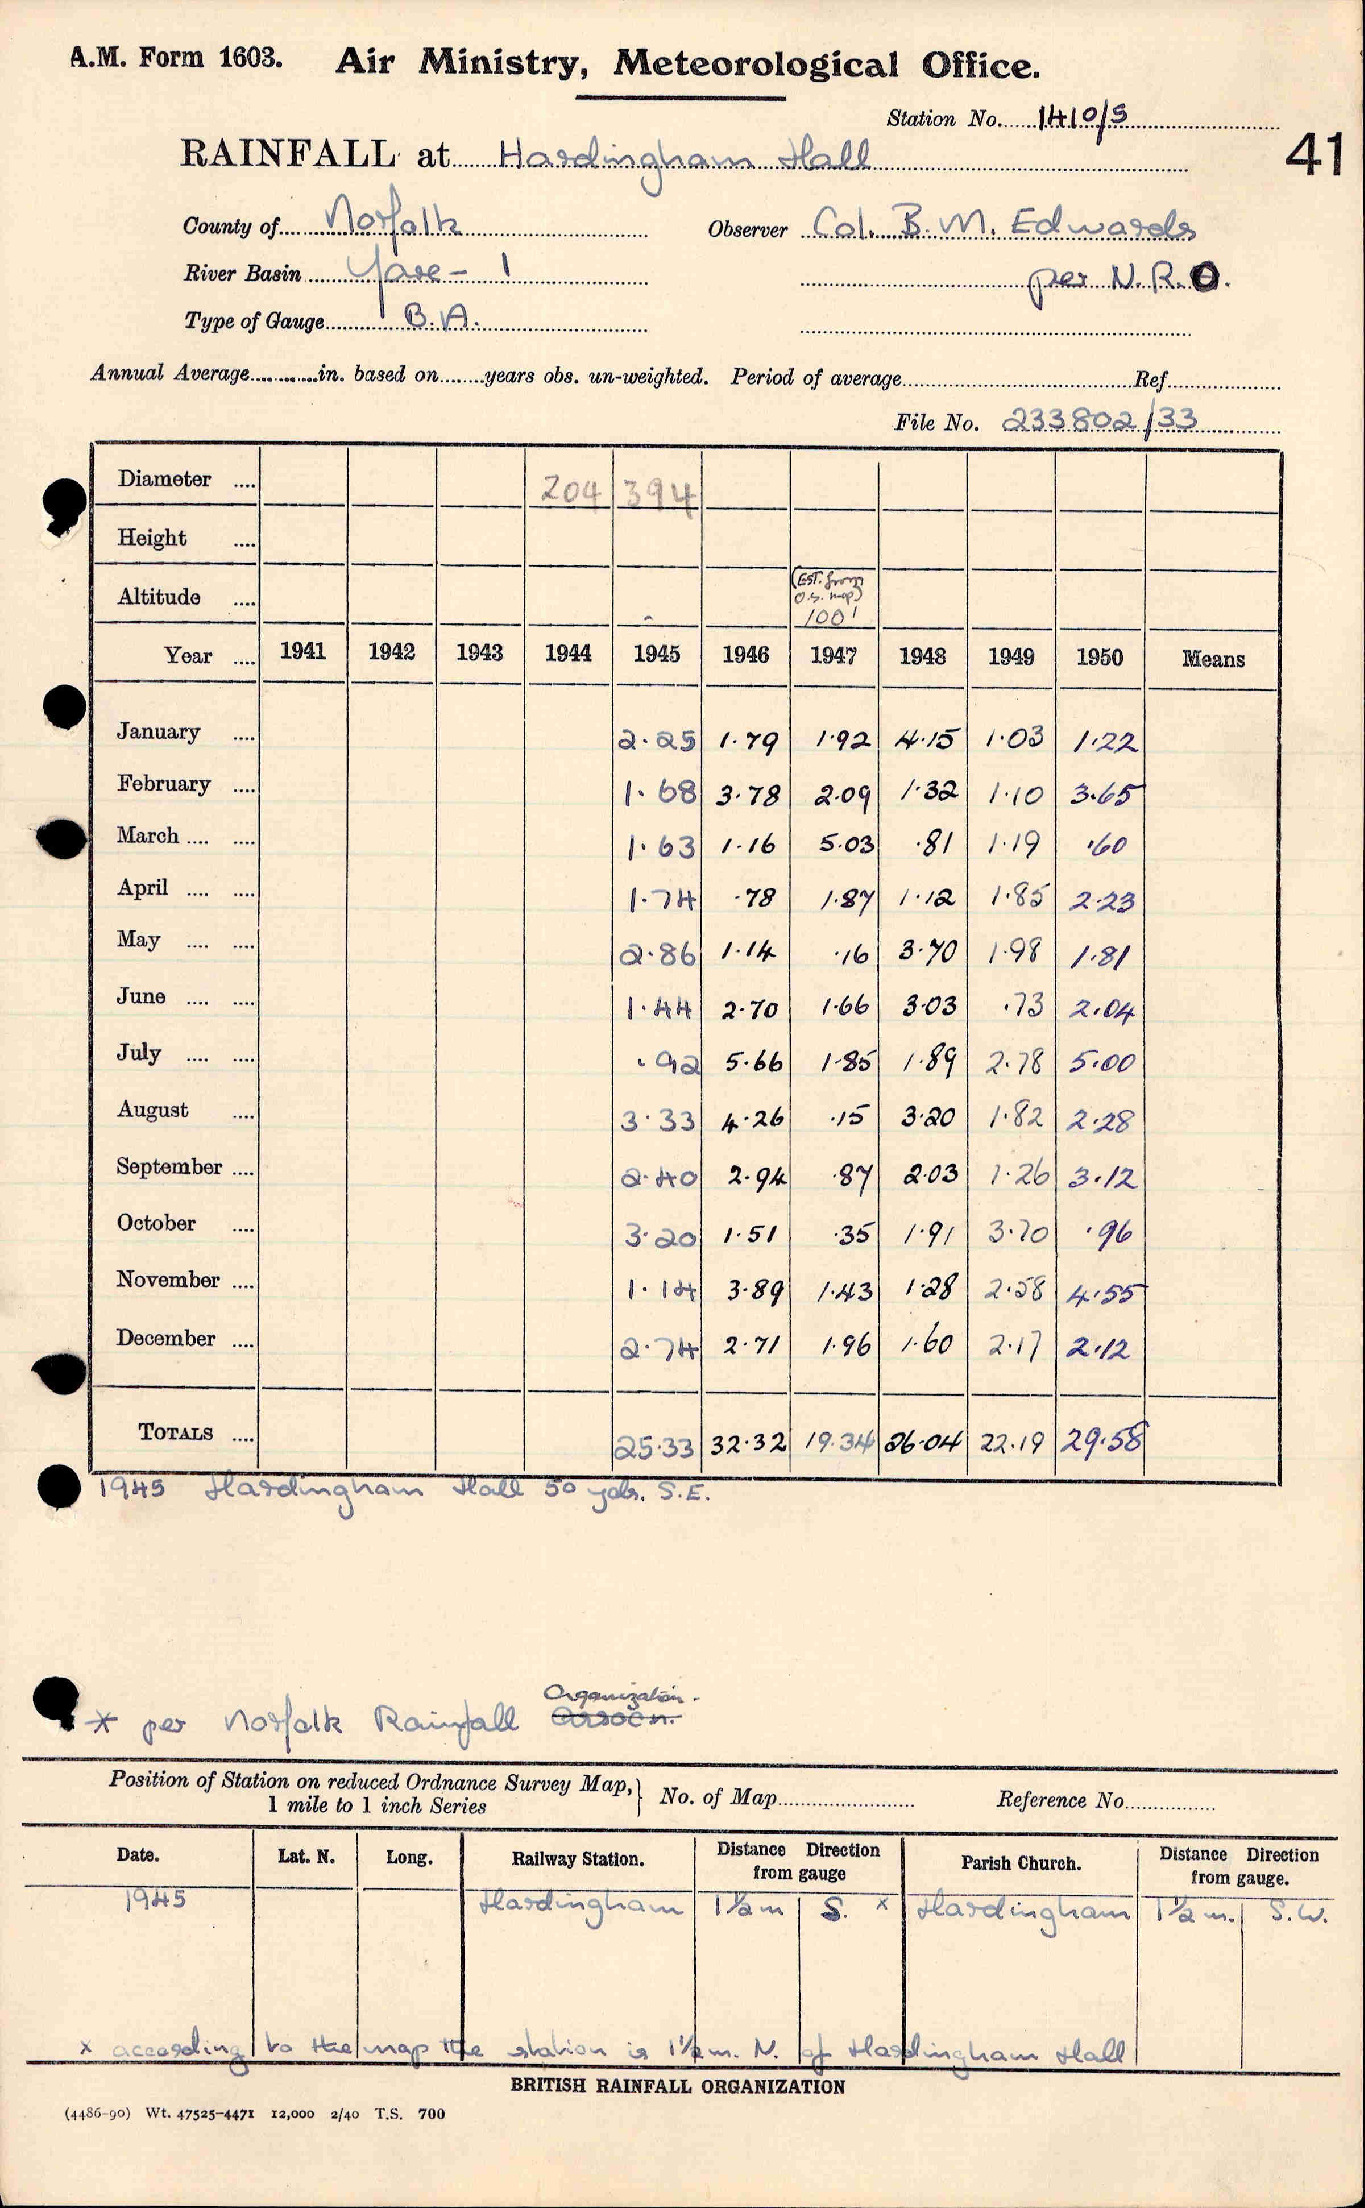 A.M. Form 1603. Air Ministry, Meteorological Office.
Station No. 1410/5
41
RAINFALL at Hardingham Hall
County of Norfolk Observer Col. B. M. Edwards
River Basin Yare - 1 per N.R.O.
Type of Gauge B.A.
Annual Average in. based on years obs. un-weighted. Period of average Ref
File No. 233802/33
Diameter 204 394
Height
Altitude (EST. from O.S. map) 100'
Year 1941 1942 1943 1944 1945 1946 1947 1948 1949 1950 Means
January 2.25 1.79 1.92 4.15 1.03 1.22
February 1.68 3.78 2.09 1.32 1.10 3.65
March 1.63 1.16 5.03 .81 1.19 .60
April 1.74 .78 1.87 1.12 1.85 2.23
May 2.86 1.14 .16 3.70 1.98 1.81
June 1.44 2.70 1.66 3.03 .73 2.04
July .92 5.66 1.85 1.89 2.78 5.00
August 3.33 4.26 .15 3.20 1.82 2.28
September 2.40 2.94 .87 2.03 1.26 3.12
October 3.20 1.51 .35 1.91 3.70 .96
November 1.14 3.89 1.43 1.28 2.58 4.55
December 2.74 2.71 1.96 1.60 2.17 2.12
TOTALS 25.33 32.32 19.34 26.04 22.19 29.58
1945 Hardingham Hall 50 yds. S.E.
Organization.
* per Norfolk Rainfall Assocn.
Position of Station on reduced Ordnance Survey Map, } No. of Map Reference No.
1 mile to 1 inch Series
Date. Lat. N. Long. Railway Station. Distance Direction from gauge Parish Church. Distance Direction from gauge.
1945 Hardingham 1½ m S. x Hardingham 1½ m. S.W.
x according to the map the station is 1½ m. N. of Hardingham Hall
BRITISH RAINFALL ORGANIZATION
(4486-90) Wt. 47525-4471 12,000 2/40 T.S. 700